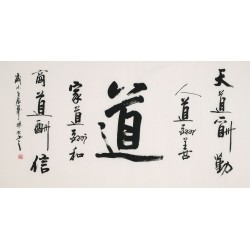 天道酬勤
人道酬善
道
家道酬和
商道酬信